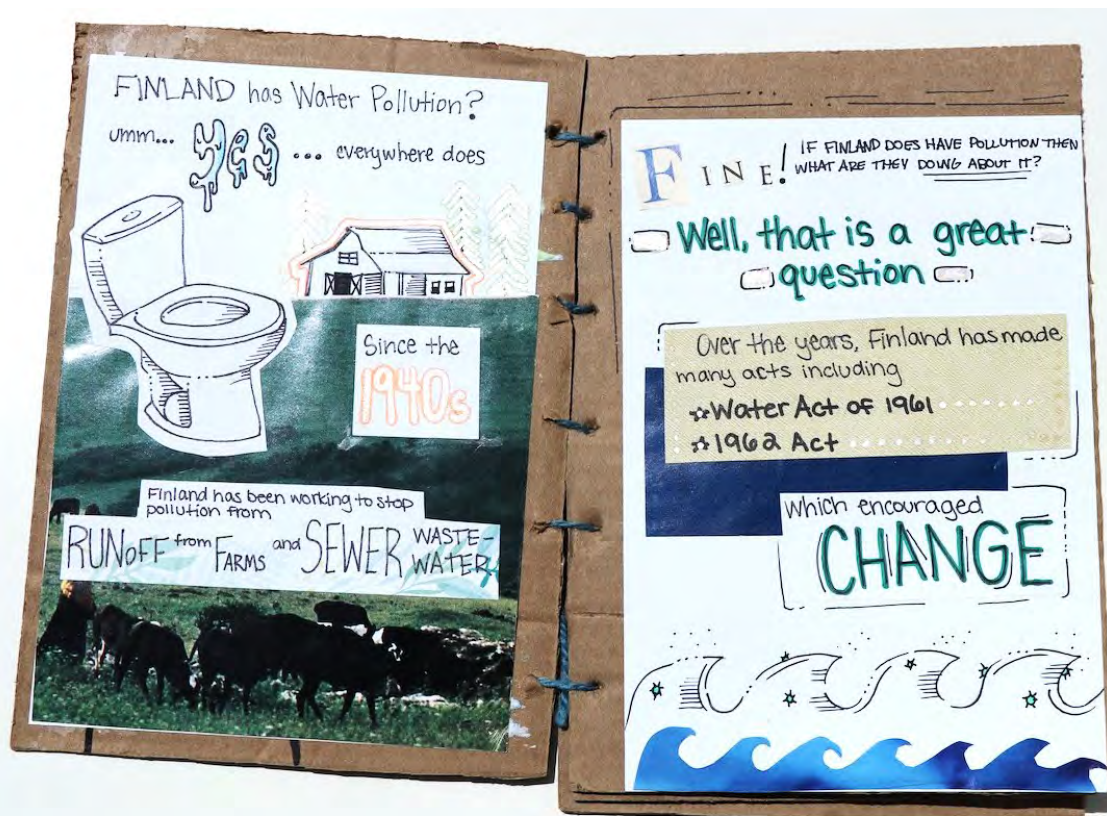 FINLAND has Water Pollution?
umm... yes ... everywhere does
Since the
1940s
Finland has been working to stop
pollution from
RUNOFF from FARMS and SEWER WASTE-
WATER
FINE! IF FINLAND DOES HAVE POLLUTION THEN
WHAT ARE THEY DOING ABOUT IT?
Well, that is a great
question
Over the years, Finland has made
many acts including
☆Water Act of 1961
☆1962 Act
which encouraged
CHANGE